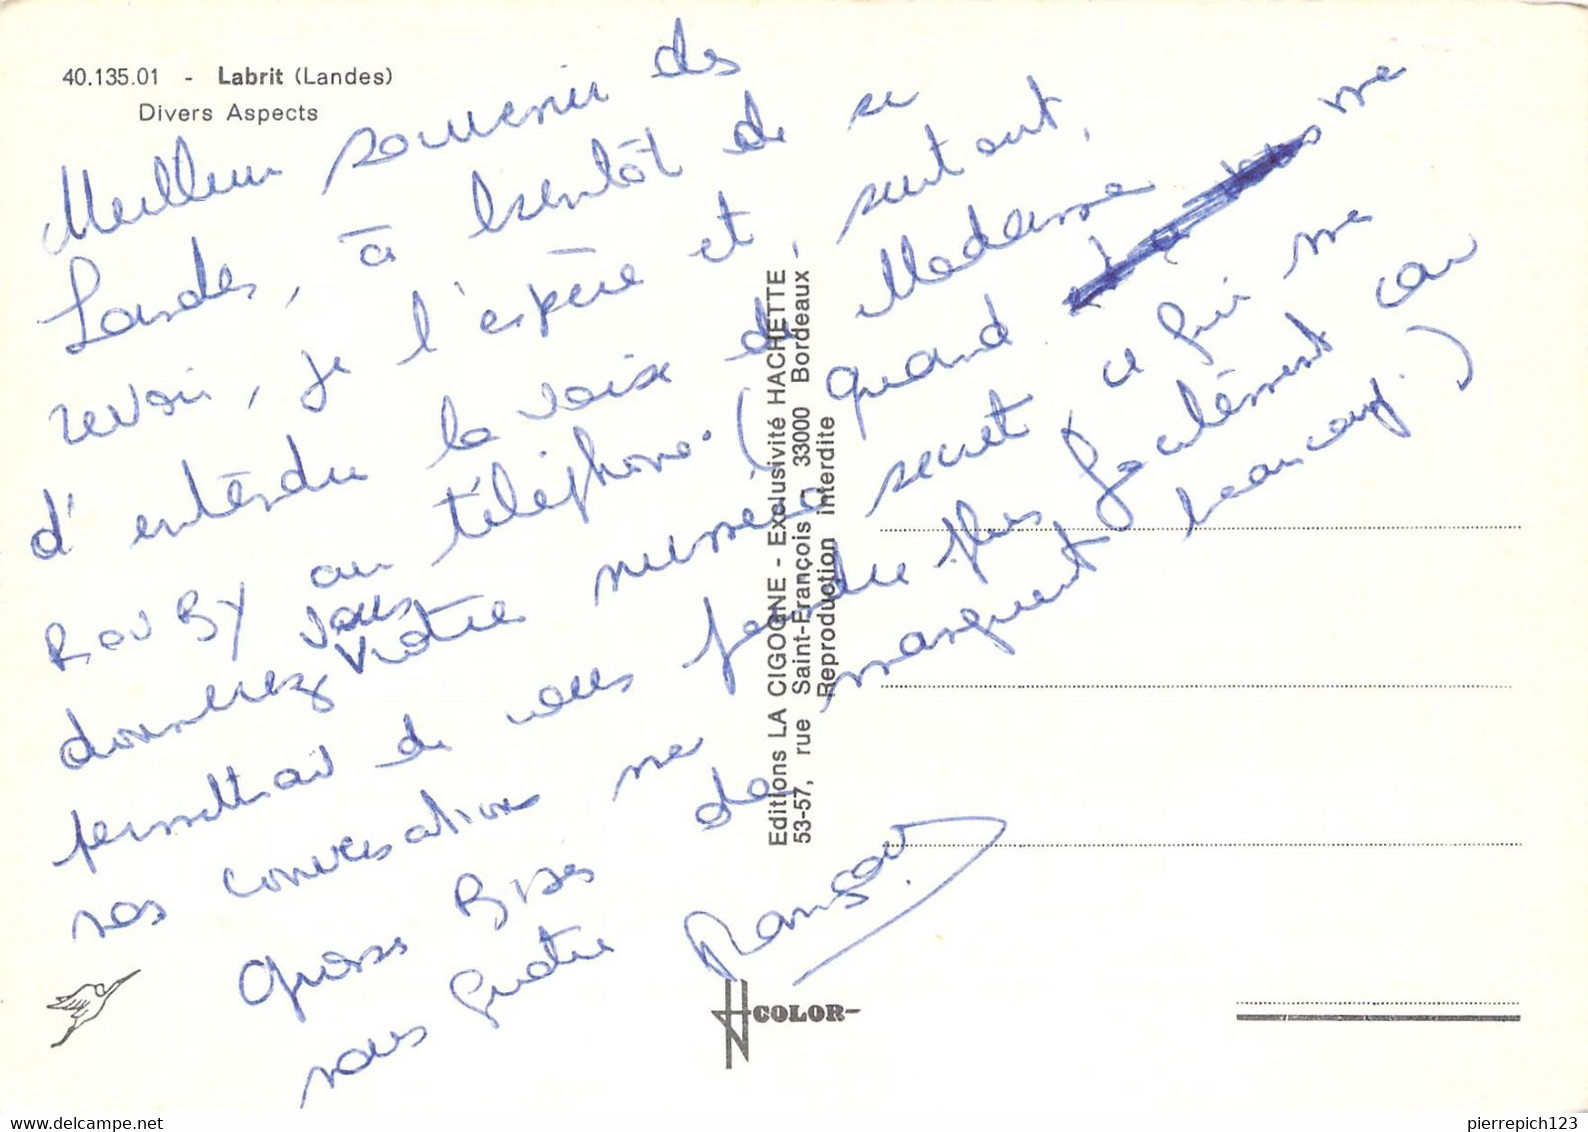 40.135.01 - Labrit (Landes)
Divers Aspects
Meilleur souvenir des
Landes, à bientôt de se
revoir, je l'espère et, surtout,
d'entendre la voix de Madame
ROUBY au téléphone. (quand me
donnerez vous votre numéro secret ce qui me
permettrait de vous joindre plus facilement car
nos conversations me manquent beaucoup.)
Grosses Bises de
nous quatre
Editions LA CIGOGNE - Exclusivité HACHETTE
53-57, rue Saint-François - 33000 Bordeaux
Reproduction interdite
COLOR
pierrepich123